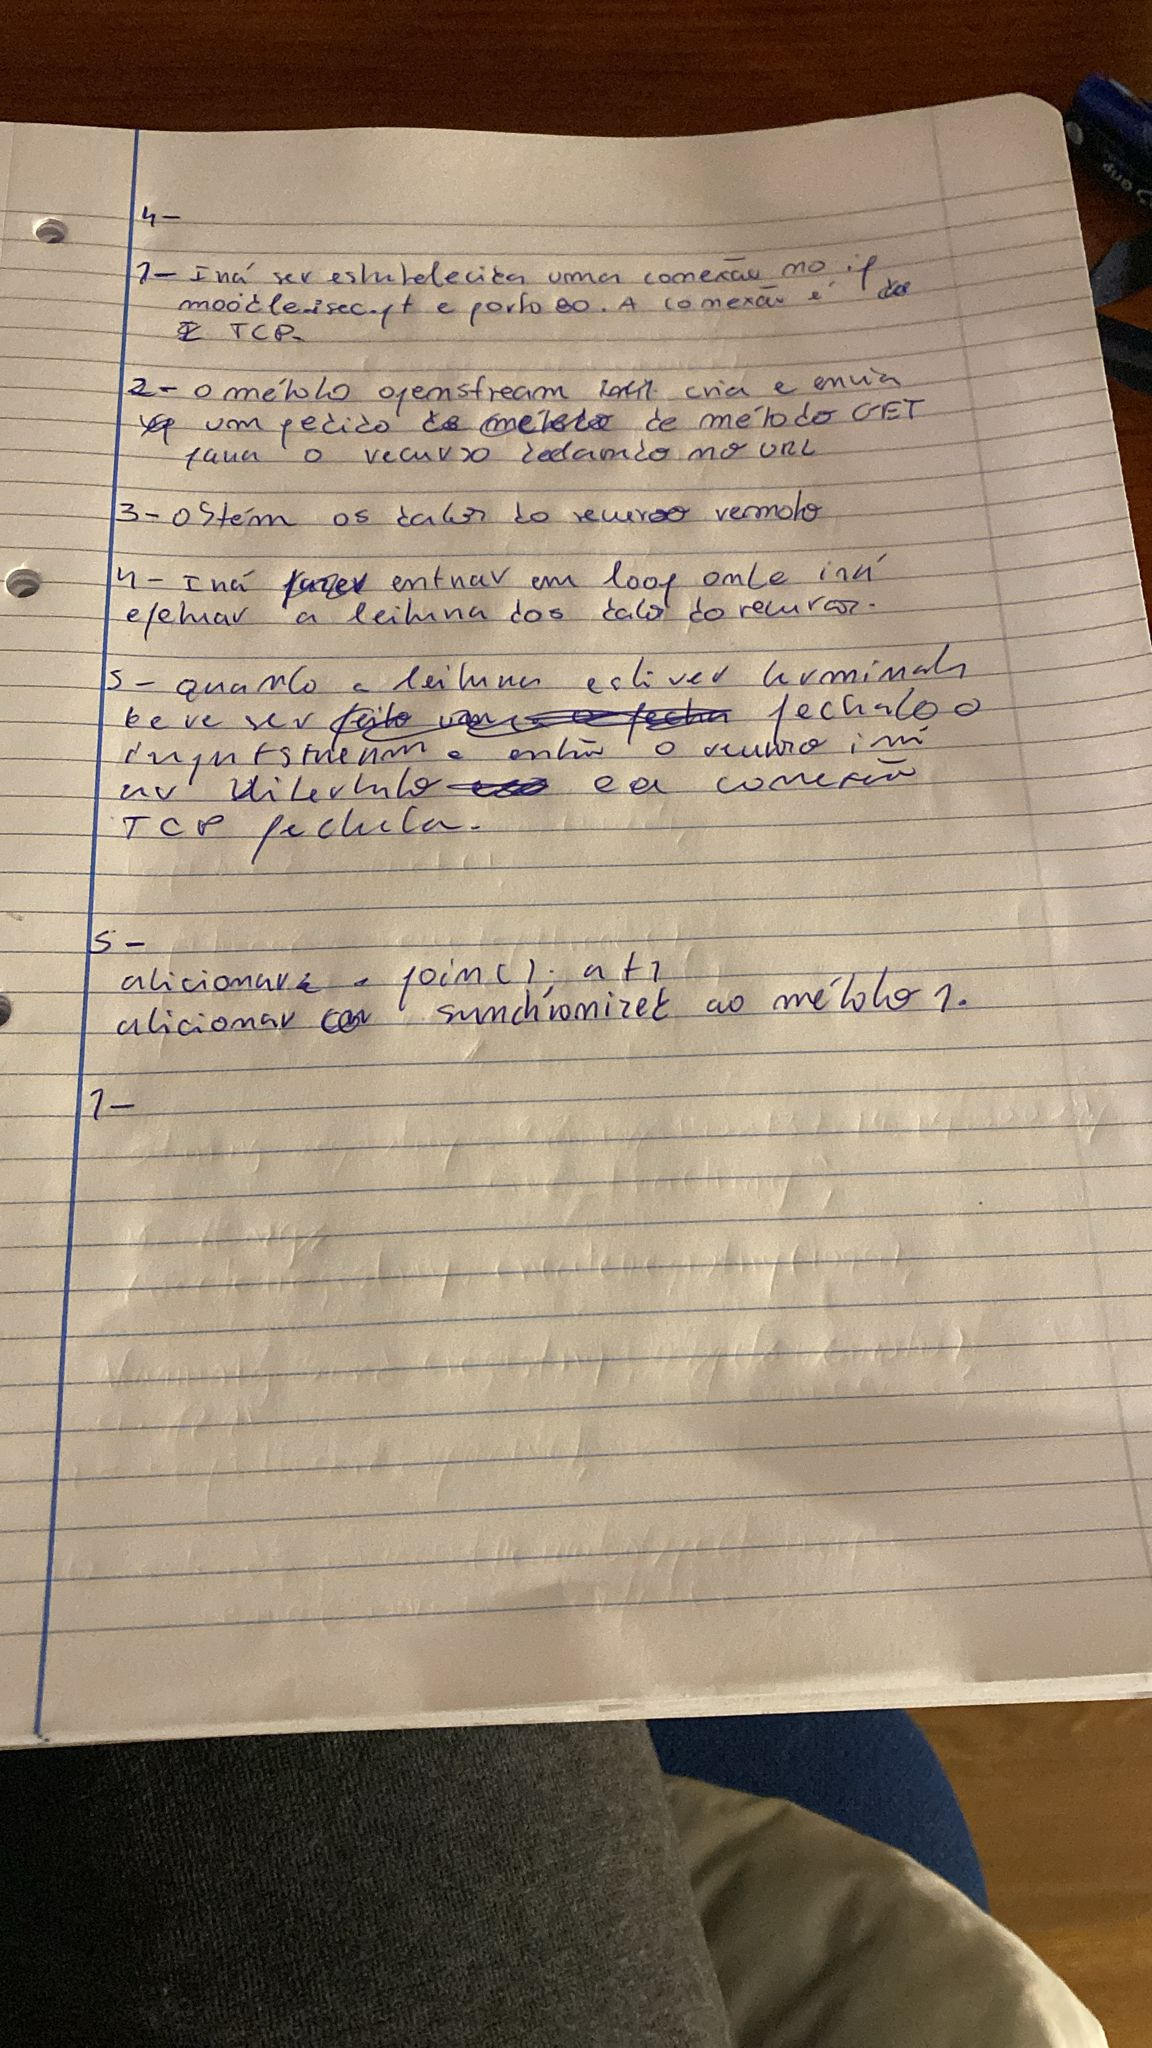 4-
1- Irá ser estabelecida uma conexão no ip do
moodle.isec.pt e porto 80. A conexão é
TCP.
2- O método openstream cria e envia
um pedido de método GET
para o recurso no URL
3- Obtém os dados do recurso remoto
4- Irá entrar em loop onde irá
efetuar a leitura dos dados do recurso.
5- quando a leitura estiver terminada
deve ser fechado o
inputstream e então o recurso irá
e a conexão
TCP fechada.
5-
adicionar . join(); a t1
adicionar sunchronized ao método 1.
1-